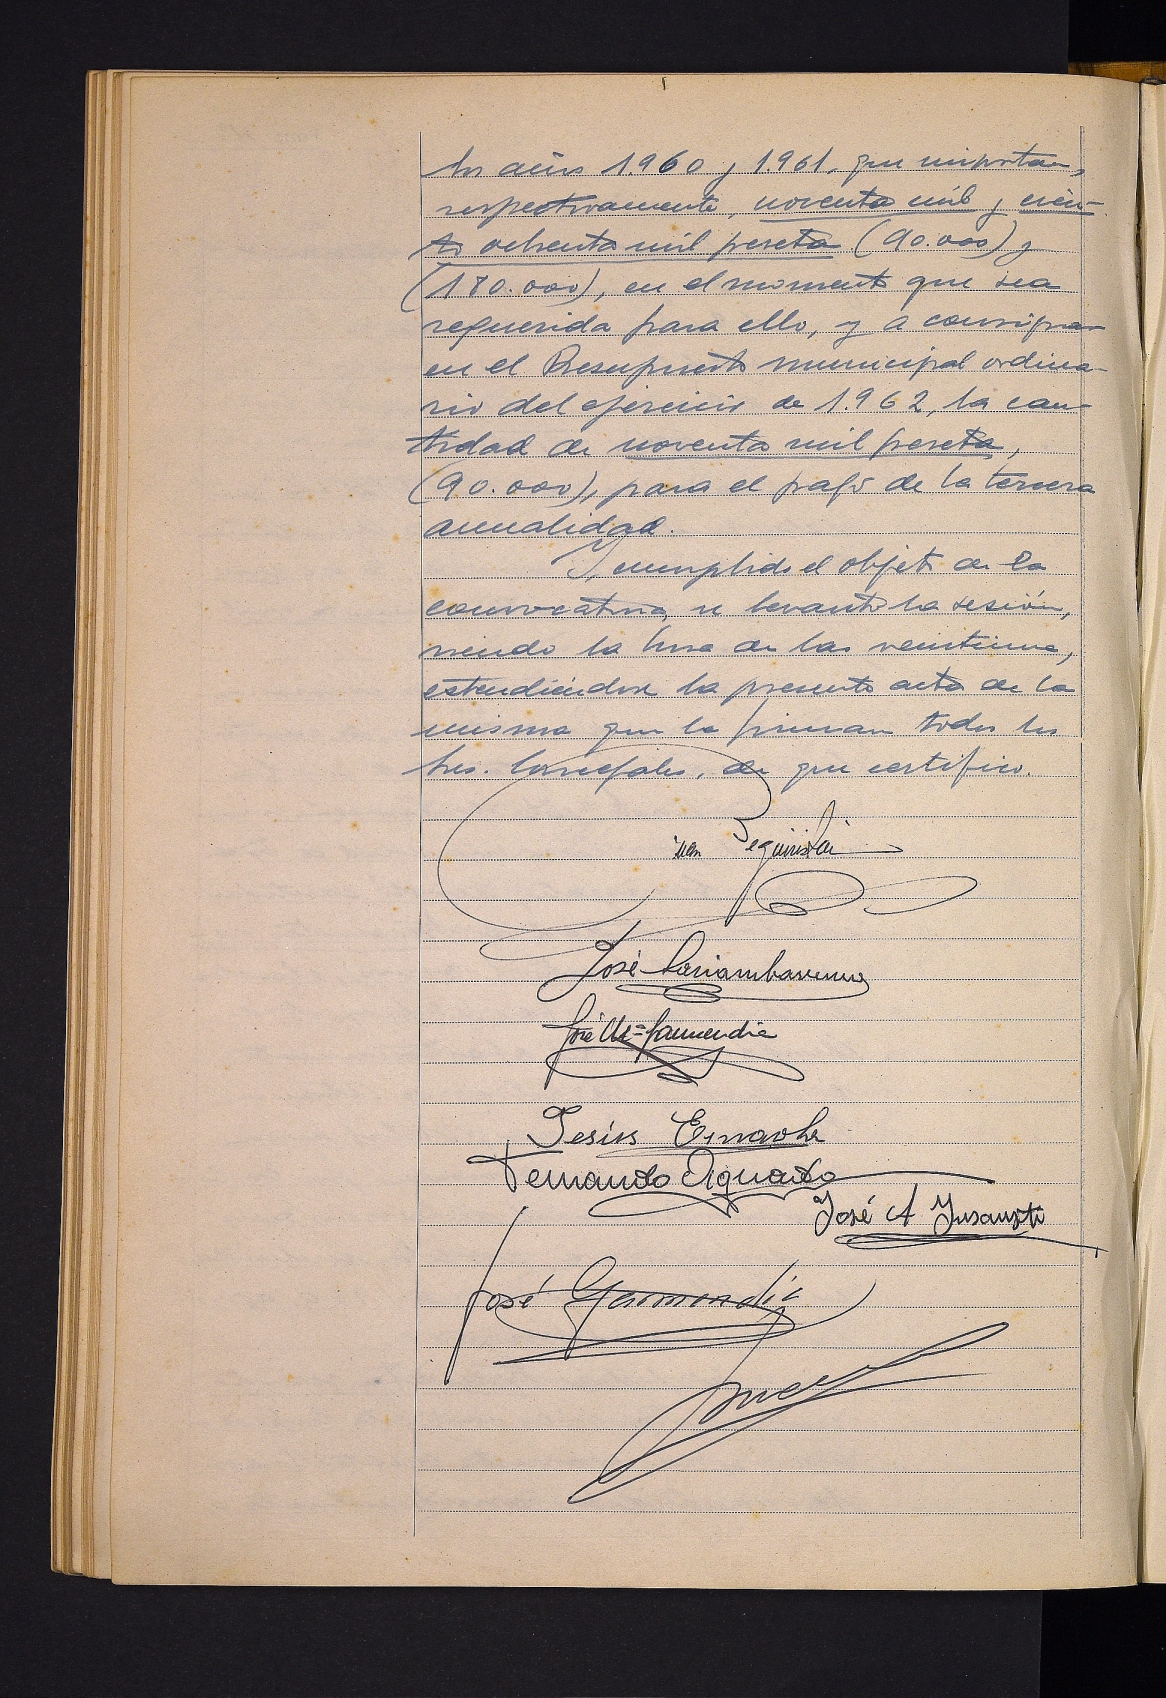 los años 1.960 y 1.961, que importan,
respectivamente, noventa mil y cien-
to ochenta mil peseta (90.000) y
(180.000), en el momento que sea
requerida para ello, y a consignar
en el Presupuesto municipal ordina-
rio del ejercicio de 1.962, la can-
tidad de noventa mil peseta,
(90.000), para el pago de la tercera
anualidad.
Y cumplido el objeto de la
convocatoria, se levantó la sesión,
siendo la hora de las veintiuna,
extendiéndose la presente acta de la
misma que la firman todos los
Sres. Concejales, de que certifico.
Juan Beguiristain
José
José Mª Garmendia
Jesús
Fernando
José A Insausti
José Garmendia